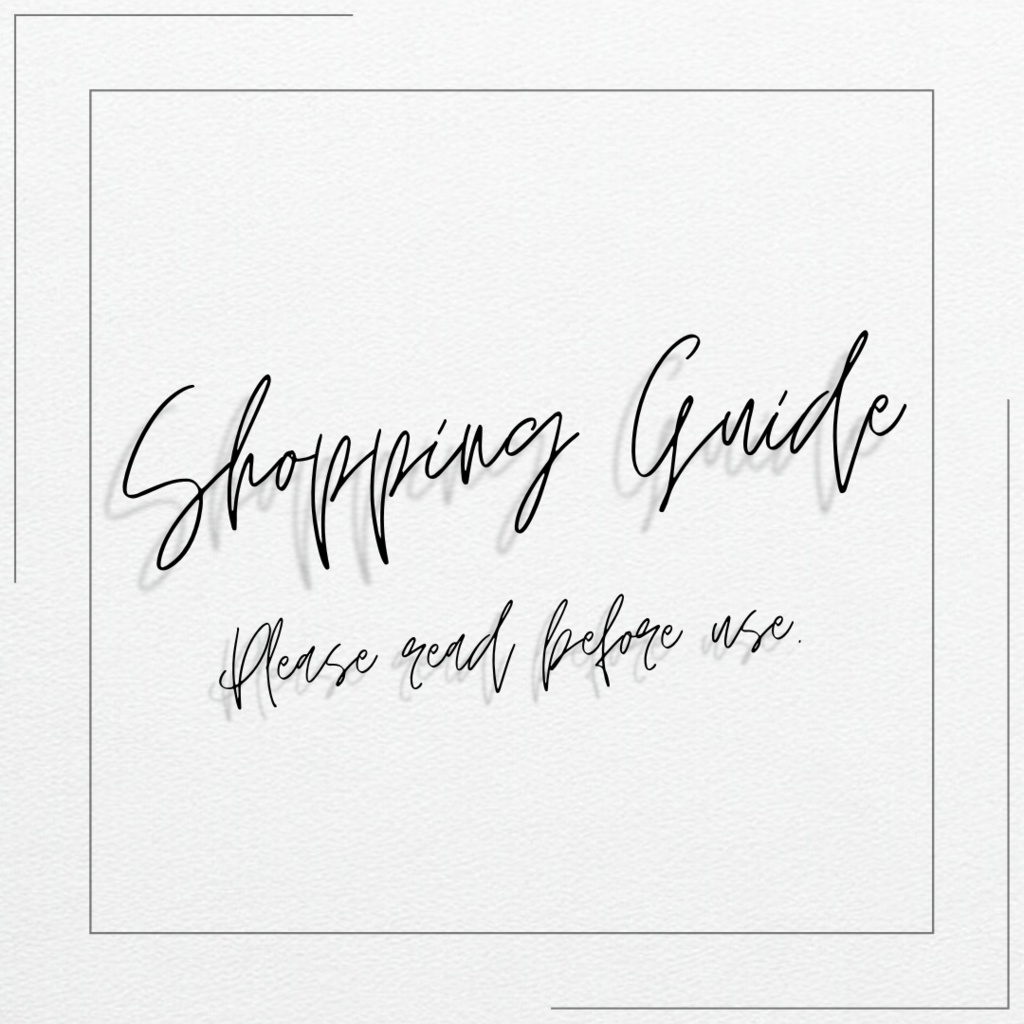 Shopping Guide
Please read before use.